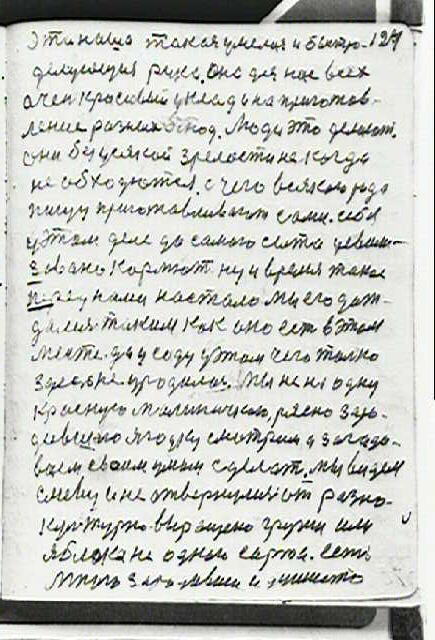 Эта наша такая умелая и быстро- 121
делующия рука. она для нас всех
очен красивый уклад на приготов-
ление разных блюд. Люди это делают.
они без усякой зрелости не когда
не обходются, с чего всякого рода
пищу приготавливают сами. себя
у этом деле до самого сыта
кормют ну и время такое
перед нами настало мы его дож-
далися таким как оно есть в этом
месте. да у саду у этом чего только
здесь не уродилось. Мы не на одну
красную малиничкою, рясно заро-
дившию ягодку смотрим и загады-
ваем своим умом сделат. мы видем
сливу и не отвернулис от разно-
културно выращено груши или
яблока не одного сорта. есть
много